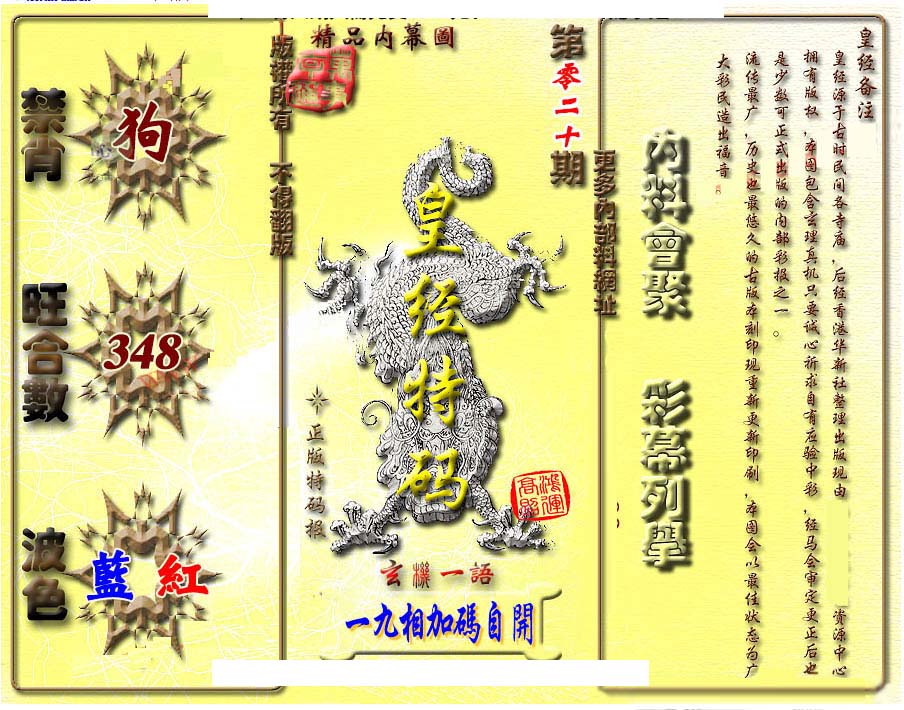 精品内幕圖
版權所有 不得翻版
第零二十期
更多內部料網址
禁肖
狗
旺合數
348
波色
藍 紅
皇经特码
正版特码报
鴻運高照
玄機一語
一九相加碼自開
內料會聚
彩幕列學
皇经备注
皇经源于古时民间各寺庙，后经香港华新社整理出版现由 资源中心
拥有版权，本图包含玄理真机只要诚心祈求自有应验中彩，经马会审定更正后也
是少数可正式出版的内部彩报之一。
流传最广，历史也最悠久的古版本刻印现重新更新印刷，本图会以最佳状态为广
大彩民造出福音